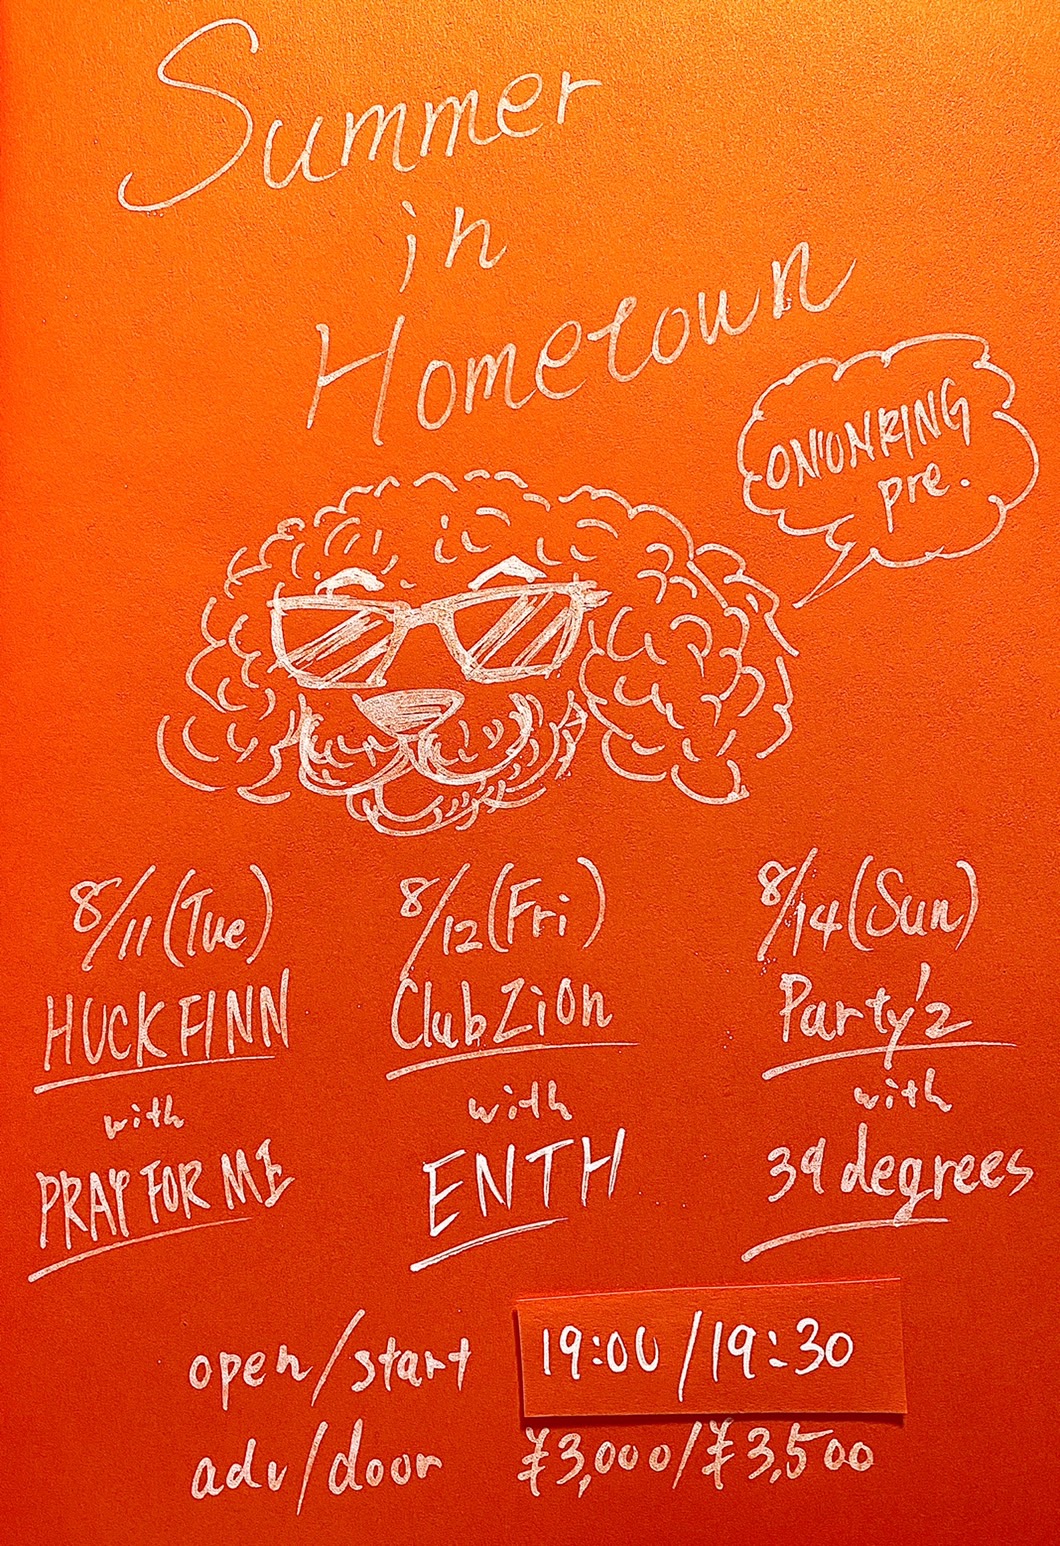 Summer
in
Hometown
ONIONRING
pre.
8/11(Tue)
HUCK FINN
with
PRAY FOR ME
8/12(Fri)
Club Zion
with
ENTH
8/14(Sun)
Party'z
with
39degrees
open/start 19:00/19:30
adv/door ¥3,000/¥3,500